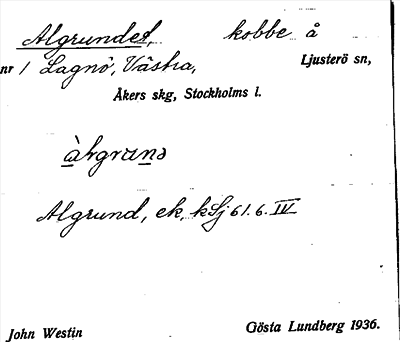 Algrundet, kobbe å
nr 1 Lagnö, Västra, Ljusterö sn,
Åkers skg, Stockholms l.
Algrund, ek, kLj 61.6.IV
John Westin Gösta Lundberg 1936.